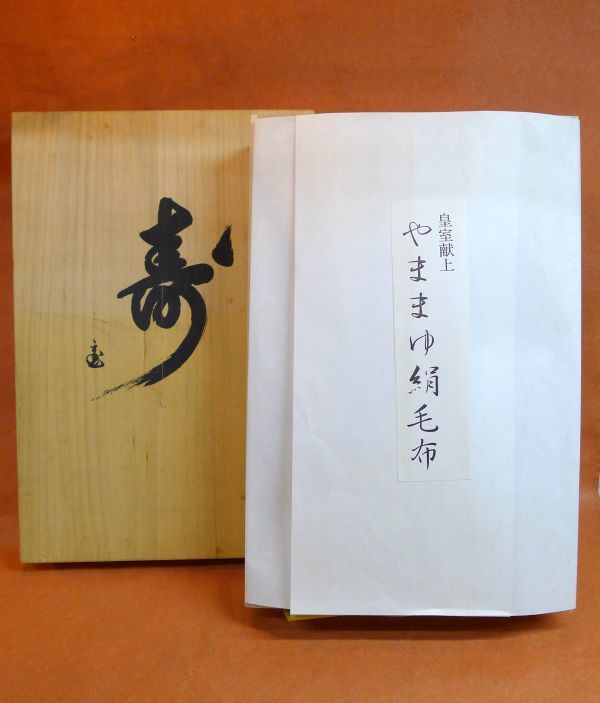 皇室献上
やままゆ絹毛布
寿